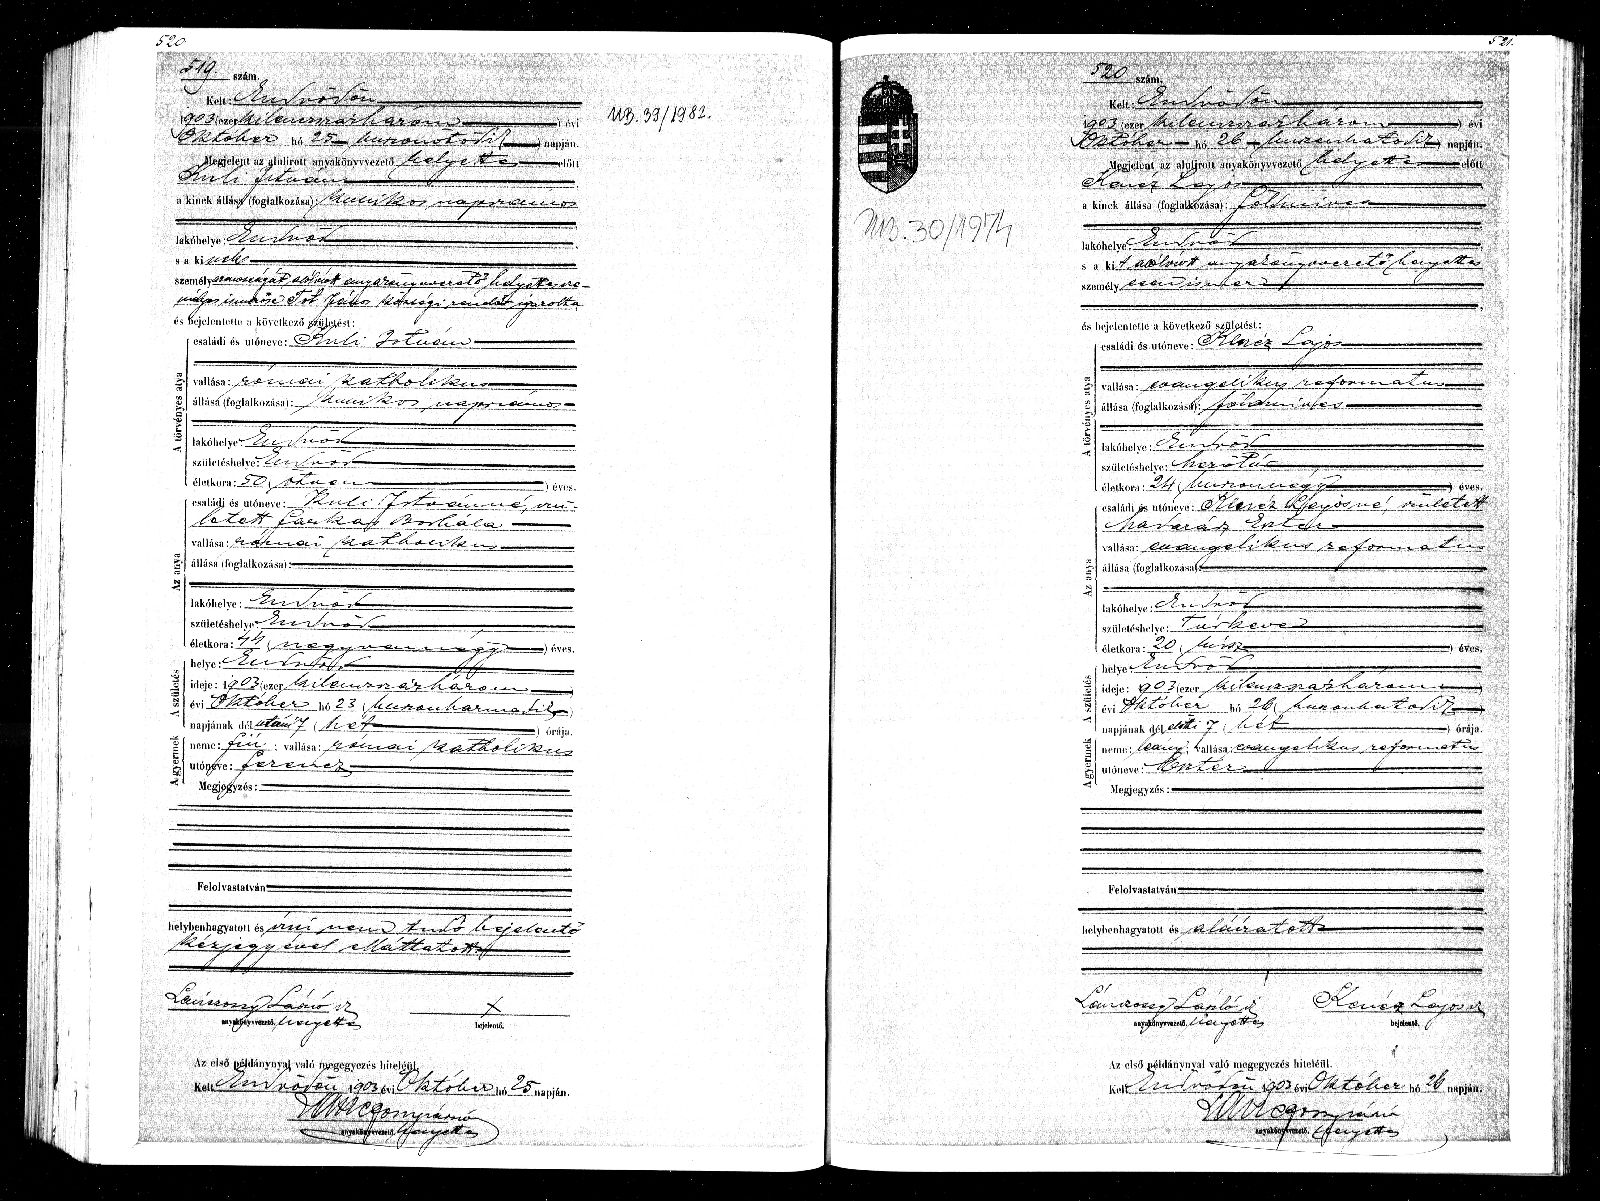 520
519. szám.
Kelt: Endrődön
1903 (ezer kilenczszázhárom) évi
Október hó 25 huszonötödik napján.
Megjelent az alulirott anyakönyvvezető helyettes előtt
Kuli István
a kinek állása (foglalkozása): kunikos napszámos
lakóhelye: Endrőd
s a ki nek
személyazonosságát alulirott anyakönyvvezető helyettes sze-
mélyes ismerőse Tót János községi rendőr igazolta,
és bejelentette a következő születést:
A törvényes atya
családi és utóneve: Kuli István
vallása: római katholikus
állása (foglalkozása): kunikos napszámos
lakóhelye: Endrőd
születéshelye: Endrőd
életkora: 50 (ötven) éves.
Az anya
családi és utóneve: Kuli Istvánné, szü-
letett Farkas Borbála
vallása: római katholikus
állása (foglalkozása):
lakóhelye: Endrőd
születéshelye: Endrőd
életkora: 44 (negyvennégy) éves.
A születés
helye: Endrőd
ideje: 1903 (ezer kilenczszázhárom)
évi Október hó 23 (huszonharmadik)
napjának dél utáni 7 (hét) órája.
A gyermek
neme: fiu; vallása: római katholikus
utóneve: Ferencz
Megjegyzés:
Felolvastatván
helybenhagyatott és irni nem tudó bejelentő
kézjegyével elláttatott
László sk
anyakönyvvezető helyettes
X
bejelentő.
Az első példánynyal való megegyezés hiteléül.
Kelt Endrődön 1903 évi Október hó 25 napján.
anyakönyvvezető. helyettes
MB. 39/1982.
521.
MB. 30/1974
520 szám.
Kelt: Endrődön
1903 (ezer kilenczszázhárom) évi
Október hó 26 huszonhatodik napján.
Megjelent az alulirott anyakönyvvezető helyettes előtt
Kenéz Lajos
a kinek állása (foglalkozása): földmíves
lakóhelye: Endrőd
s a kit alólirott anyakönyvvezető helyettes
személyesen ismer,
és bejelentette a következő születést:
A törvényes atya
családi és utóneve: Kenéz Lajos
vallása: evangelikus reformatus
állása (foglalkozása): földmíves
lakóhelye: Endrőd
születéshelye: Mezőtúr
életkora: 24 (huszonnégy) éves.
Az anya
családi és utóneve: Kenéz Lajosné, született
Madarász Eszter
vallása: evangelikus reformatus
állása (foglalkozása):
lakóhelye: Endrőd
születéshelye: Turkeve
életkora: 20 (húsz) éves.
A születés
helye: Endrőd
ideje: 1903 (ezer kilenczszázhárom)
évi Október hó 26 (huszonhatodik)
napjának dél előtti 7 (hét) órája.
A gyermek
neme: leány; vallása: evangelikus reformatus
utóneve: Eszter
Megjegyzés:
Felolvastatván
helybenhagyatott és aláiratott
László sk
anyakönyvvezető, helyettes
Kenéz Lajos sk
bejelentő.
Az első példánynyal való megegyezés hiteléül.
Kelt Endrődön 1903 évi Október hó 26 napján.
anyakönyvvezető. helyettes